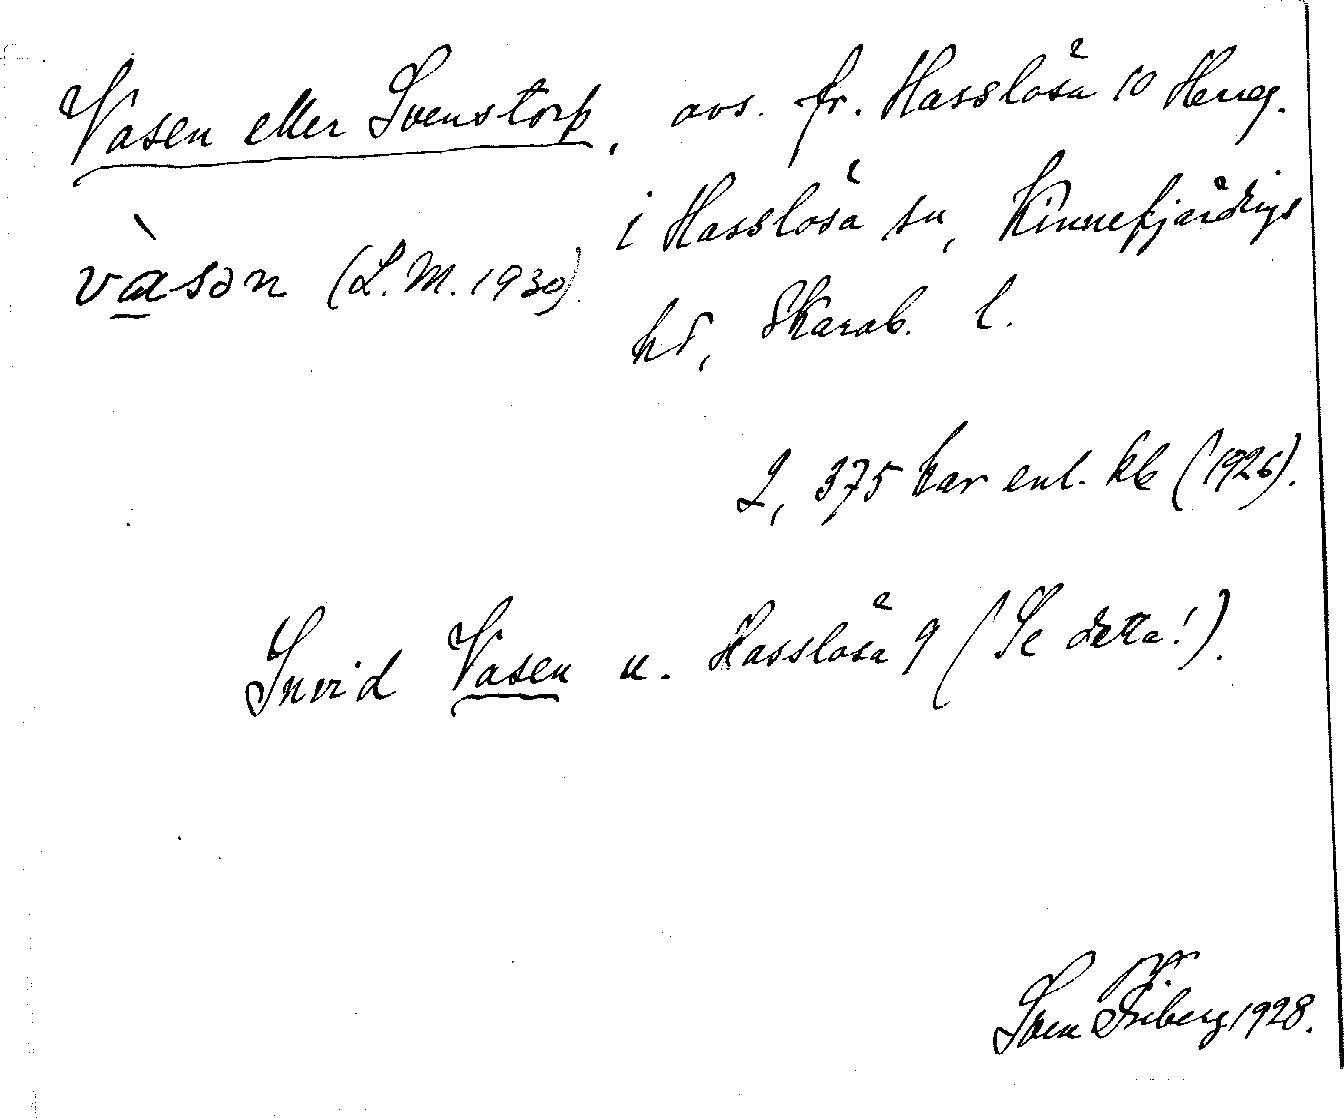 Vasen eller Svenstorp, avs. fr. Hasslösa 10 Herreg.
i Hasslösa sn, Kinnefjärdings
vàsən (L.M. 1930).
hd, Skarab. l.
2,375 har enl. kb (1926).
Invid Vasen u. Hasslösa 9 (Se detta!).
Sven Friberg 1928.